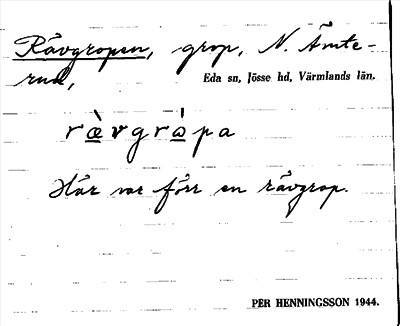 Rävgropen, grop, N. Ämte-
rud,
Eda sn, Jösse hd, Värmlands län.
rævgrɷpa
Här var förr en rävgrop.
PER HENNINGSSON 1944.